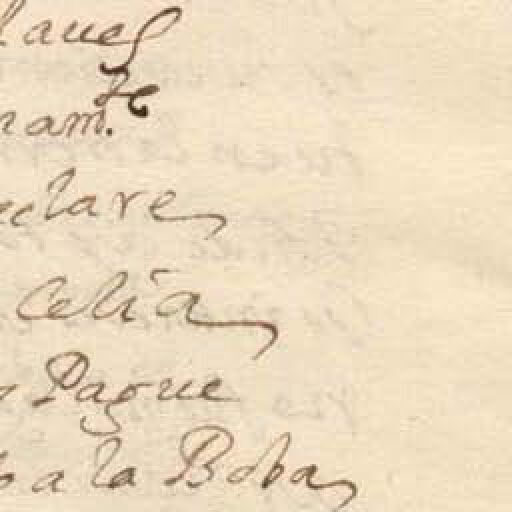 laues
nam.te
eclare,
Celia,
Pague
a la Boba,